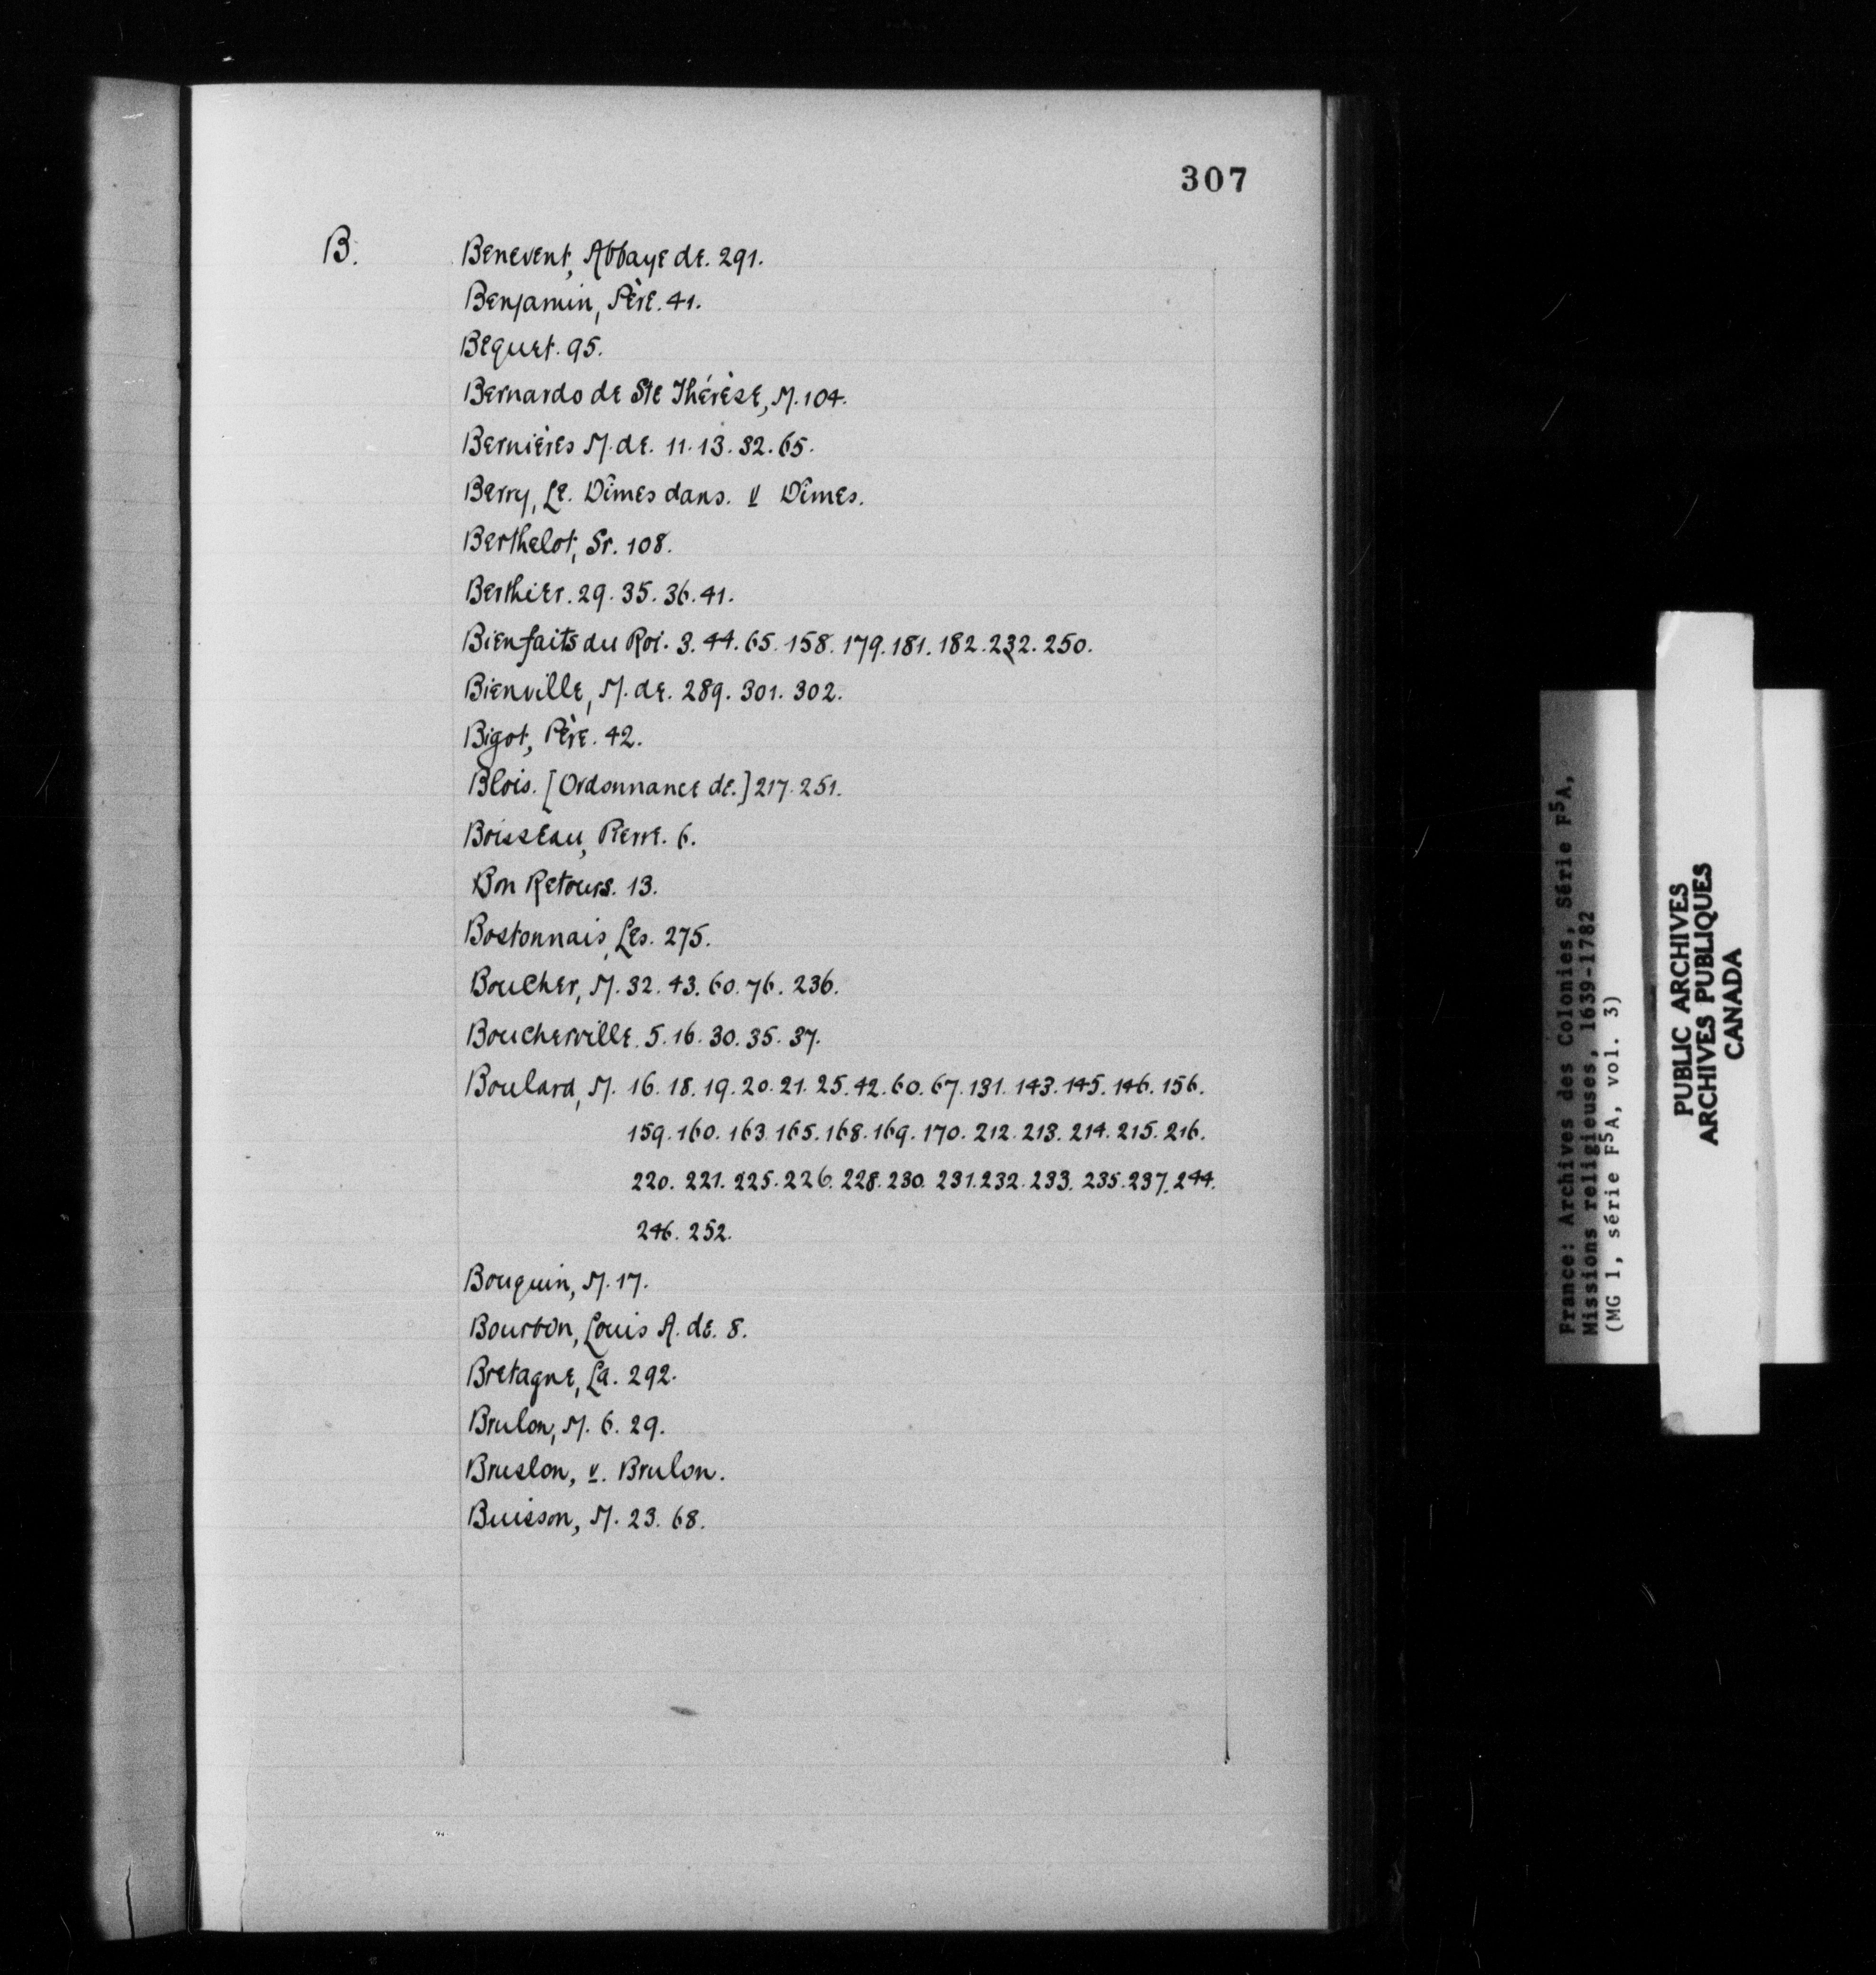 307
B.
Benevent, Abbaye de. 291.
Benjamin, Père. 41.
Bequet. 95.
Bernardo de Ste Thérèse, M. 104.
Bernières M. de. 11. 13. 32. 65.
Berry, Le. Dîmes dans. V Dîmes.
Berthelot, Sr. 108.
Berthier. 29. 35. 36. 41.
Bienfaits du Roi. 3. 44. 65. 158. 179. 181. 182. 232. 250.
Bienville, M. de. 289. 301. 302.
Bigot, Père. 42.
Blois. [Ordonnance de.] 217. 251.
Boisseau, Pierre. 6.
Bon Retours. 13.
Bostonnais, Les. 275.
Boucher, M. 32. 43. 60. 76. 236.
Boucherville. 5. 16. 30. 35. 37.
Boulard, M. 16. 18. 19. 20. 21. 25. 42. 60. 67. 131. 143. 145. 146. 156.
159. 160. 163. 165. 168. 169. 170. 212. 213. 214. 215. 216.
220. 221. 225. 226. 228. 230. 231. 232. 233. 235. 237. 244.
246. 252.
Bouquin, M. 17.
Bourbon, Louis A. de. 8.
Bretagne, La. 292.
Brulon, M. 6. 29.
Bruslon, v. Brulon.
Buisson, M. 23. 68.
France: Archives des Colonies, Série F5A,
Missions religieuses, 1639-1782
(MG 1, série F5A, vol. 3)
PUBLIC ARCHIVES
ARCHIVES PUBLIQUES
CANADA